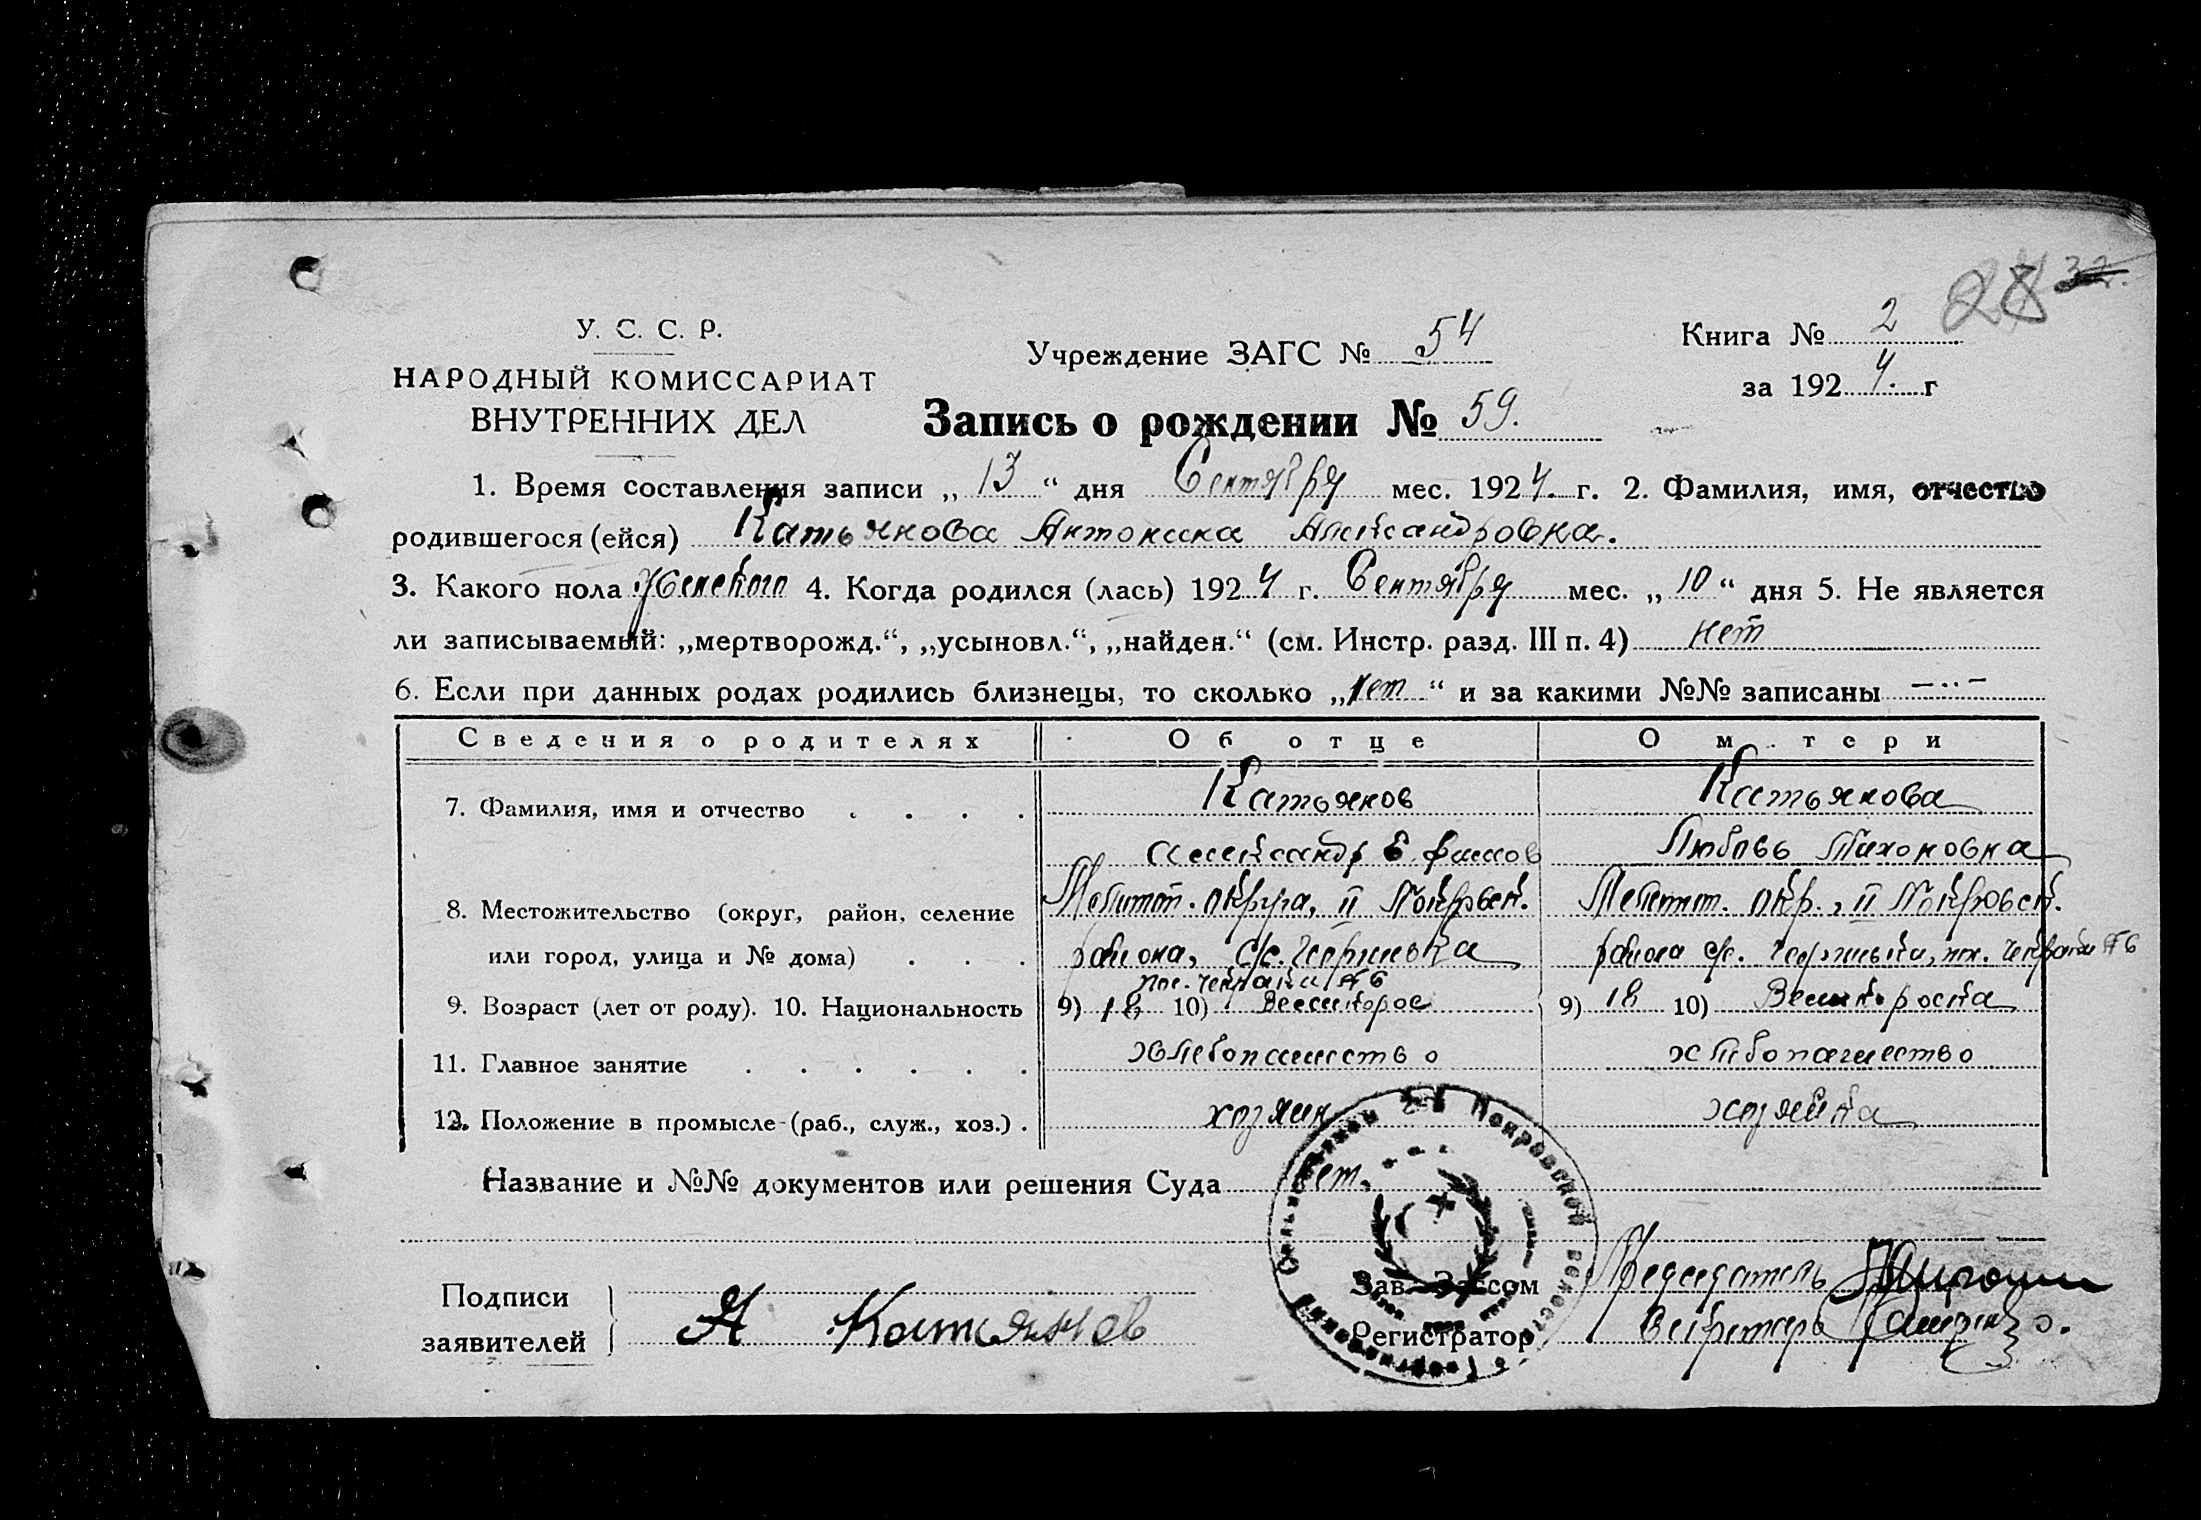 28 32.
У. С. С. Р.
НАРОДНЫЙ КОМИССАРИАТ
ВНУТРЕННИХ ДЕЛ
Учреждение ЗАГС № 54
Книга № 2
за 192 4. г
Запись о рождении № 59.
1. Время составления записи „ 13 “ дня Сентября мес. 192 4. г. 2. Фамилия, имя, отчество
родившегося (ейся) Катьянова Антонина Александровна.
3. Какого пола Женского 4. Когда родился (лась) 192 4 г. Сентября мес. „ 10 “ дня 5. Не является
ли записываемый: „мертворожд.“, „усыновл.“, „найден.“ (см. Инстр. разд. III п. 4) нет
6. Если при данных родах родились близнецы, то сколько „нет“ и за какими №№ записаны —··—
Сведения о родителях Об отце О м тери
7. Фамилия, имя и отчество . . . . Катьянов Катьянова
Александр Ефимов Любовь Тихоновна
8. Местожительство (округ, район, селение Мелитоп. округа, II Покровск. Мелитоп. окр., II Покровск.
или город, улица и № дома) . . . района, с/с. района с/с.
№ 6
9. Возраст (лет от роду). 10. Национальность 9) 18 10) Великорос 9) 18 10) Великоросска
11. Главное занятие . . . . . . хлебопашество хлебопашество
12. Положение в промысле (раб., служ., хоз.) . хозяин хозяйка
Название и №№ документов или решения Суда нет.
2-й Покровской волости
Подписи
заявителей
А Катьянов
Зав. Загсом Председатель
Регистратор Секретарь